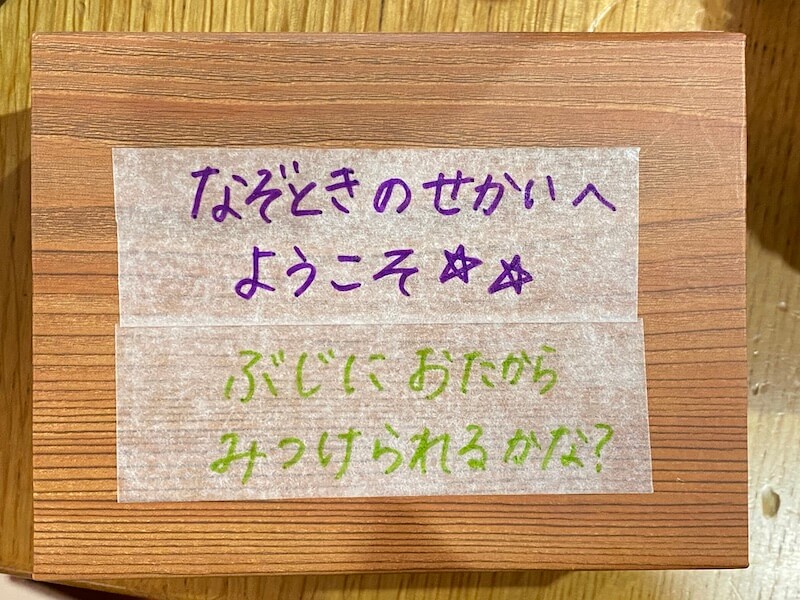 なぞときのせかいへ
ようこそ☆☆
ぶじにおたから
みつけられるかな?